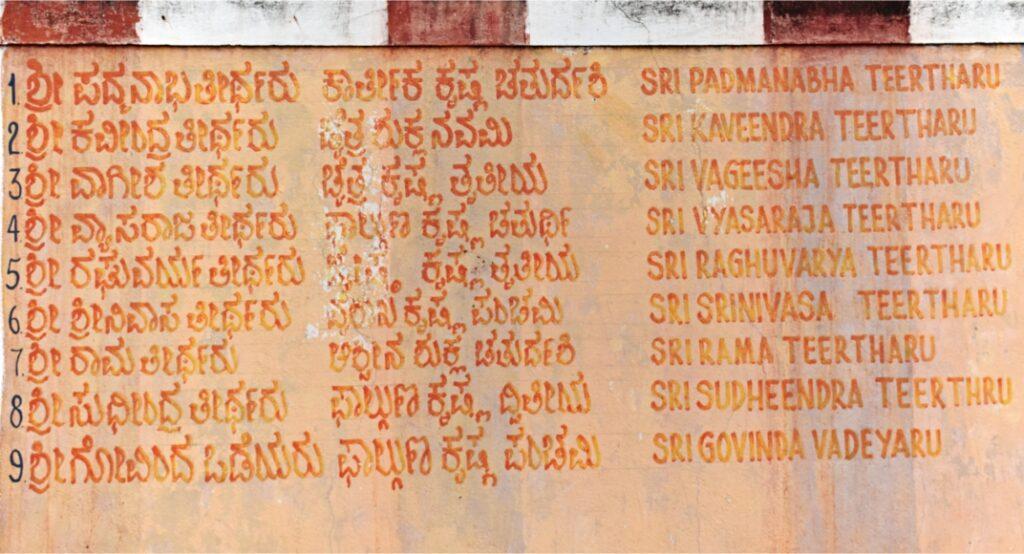 1. ಶ್ರೀ ಪದ್ಮನಾಭತೀರ್ಥರು ಕಾರ್ತೀಕ ಕೃಷ್ಣ ಚತುರ್ದಶಿ SRI PADMANABHA TEERTHARU
2. ಶ್ರೀ ಕವೀಂದ್ರತೀರ್ಥರು ಚೈತ್ರ ಶುಕ್ಲ ನವಮಿ SRI KAVEENDRA TEERTHARU
3. ಶ್ರೀ ವಾಗೀಶ ತೀರ್ಥರು ಚೈತ್ರ ಕೃಷ್ಣ ತೃತೀಯ SRI VAGEESHA TEERTHARU
4. ಶ್ರೀ ವ್ಯಾಸರಾಜ ತೀರ್ಥರು ಫಾಲ್ಗುಣ ಕೃಷ್ಣ ಚತುರ್ಥಿ SRI VYASARAJA TEERTHARU
5. ಶ್ರೀ ರಘುವರ್ಯ ತೀರ್ಥರು ಕೃಷ್ಣ ತೃತೀಯ SRI RAGHUVARYA TEERTHARU
6. ಶ್ರೀ ಶ್ರೀನಿವಾಸ ತೀರ್ಥರು ಕೃಷ್ಣ ಪಂಚಮಿ SRI SRINIVASA TEERTHARU
7. ಶ್ರೀ ರಾಮ ತೀರ್ಥರು ಅಶ್ವೀನ ಶುಕ್ಲ ಚತುರ್ದಶಿ SRI RAMA TEERTHARU
8 ಶ್ರೀ ಸುಧೀಂದ್ರ ತೀರ್ಥರು ಫಾಲ್ಗುಣ ಕೃಷ್ಣ ದ್ವಿತೀಯ SRI SUDHEENDRA TEERTHRU
9 ಶ್ರೀ ಗೋವಿಂದ ಒಡೆಯರು ಫಾಲ್ಗುಣ ಕೃಷ್ಣ ಪಂಚಮಿ SRI GOVINDA VADEYARU